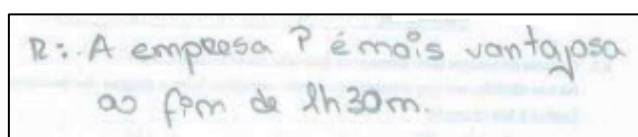 R: A empresa P é mais vantajosa
ao fim de 1h30m.